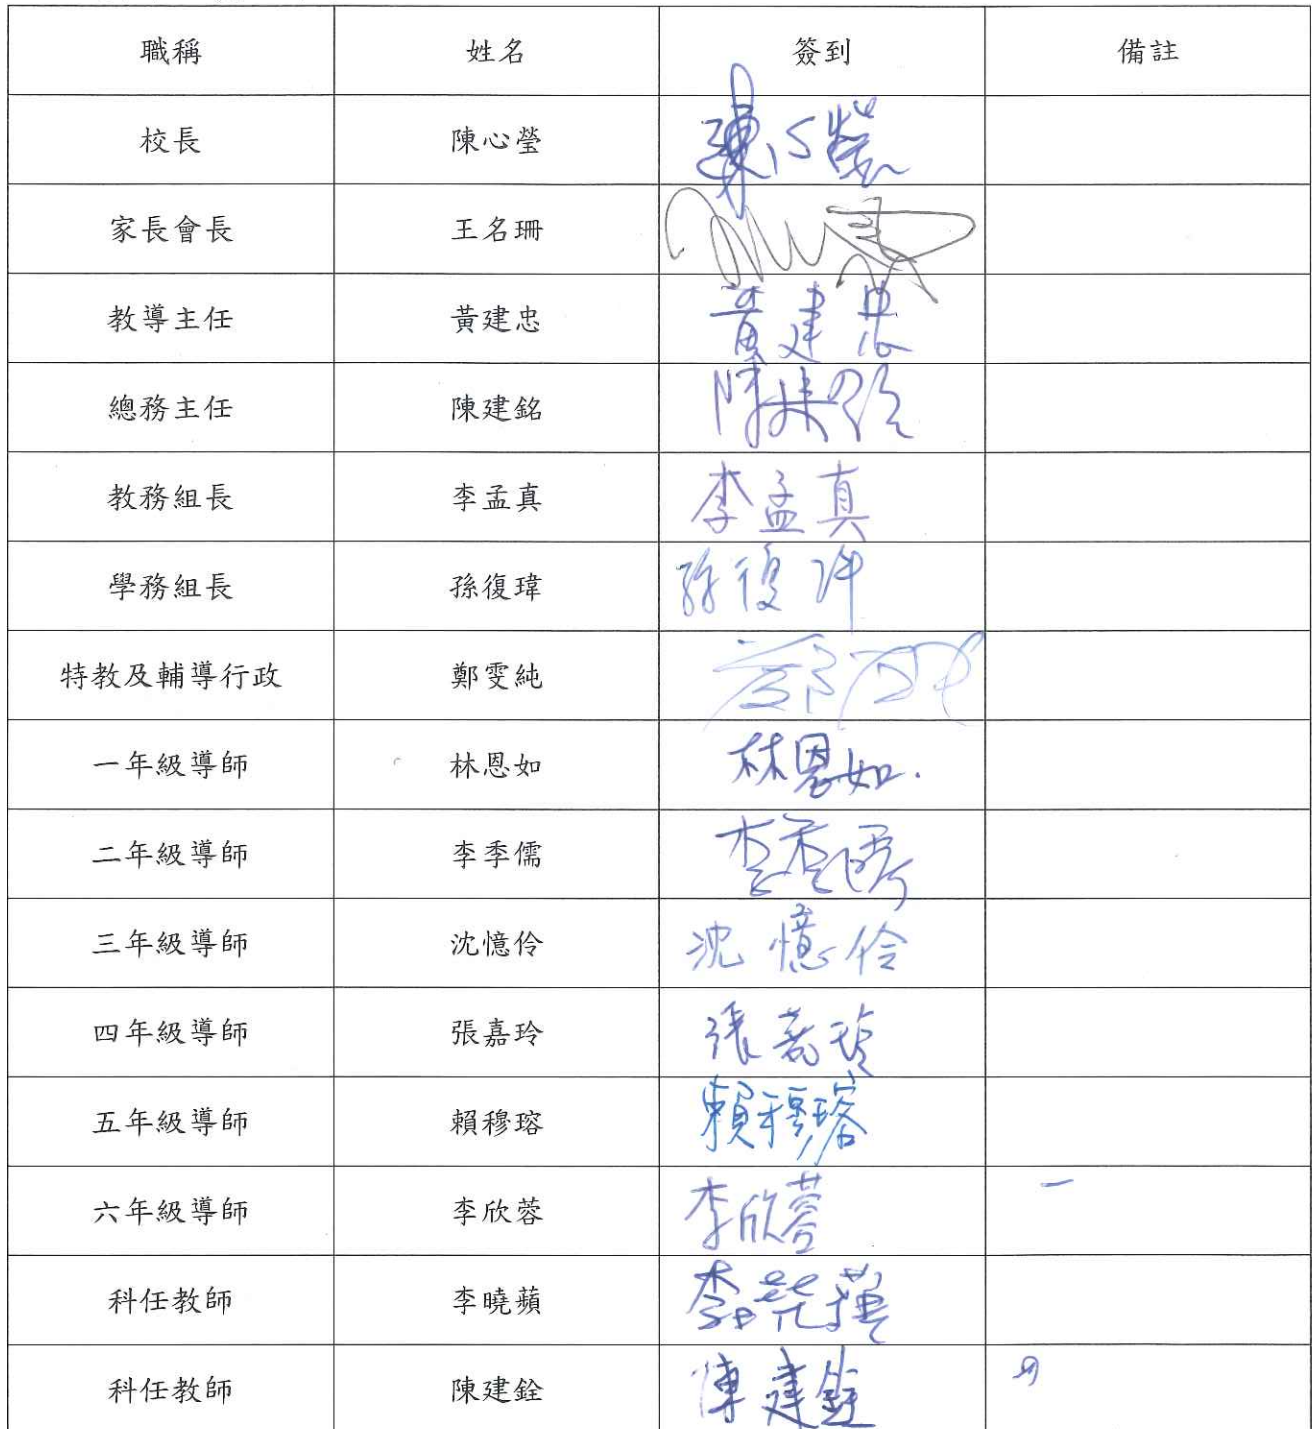 職稱 姓名 簽到 備註
校長 陳心瑩 陳心瑩
家長會長 王名珊
教導主任 黃建忠 黃建忠
總務主任 陳建銘 陳建銘
教務組長 李孟真 李孟真
學務組長 孫復瑋 孫復瑋
特教及輔導行政 鄭雯純 鄭
一年級導師 林恩如 林恩如.
二年級導師 李季儒 李季儒
三年級導師 沈憶伶 沈憶伶
四年級導師 張嘉玲 張嘉玲
五年級導師 賴穆瑢 賴穆瑢
六年級導師 李欣蓉 李欣蓉
科任教師 李曉蘋 李曉蘋
科任教師 陳建銓 陳建銓